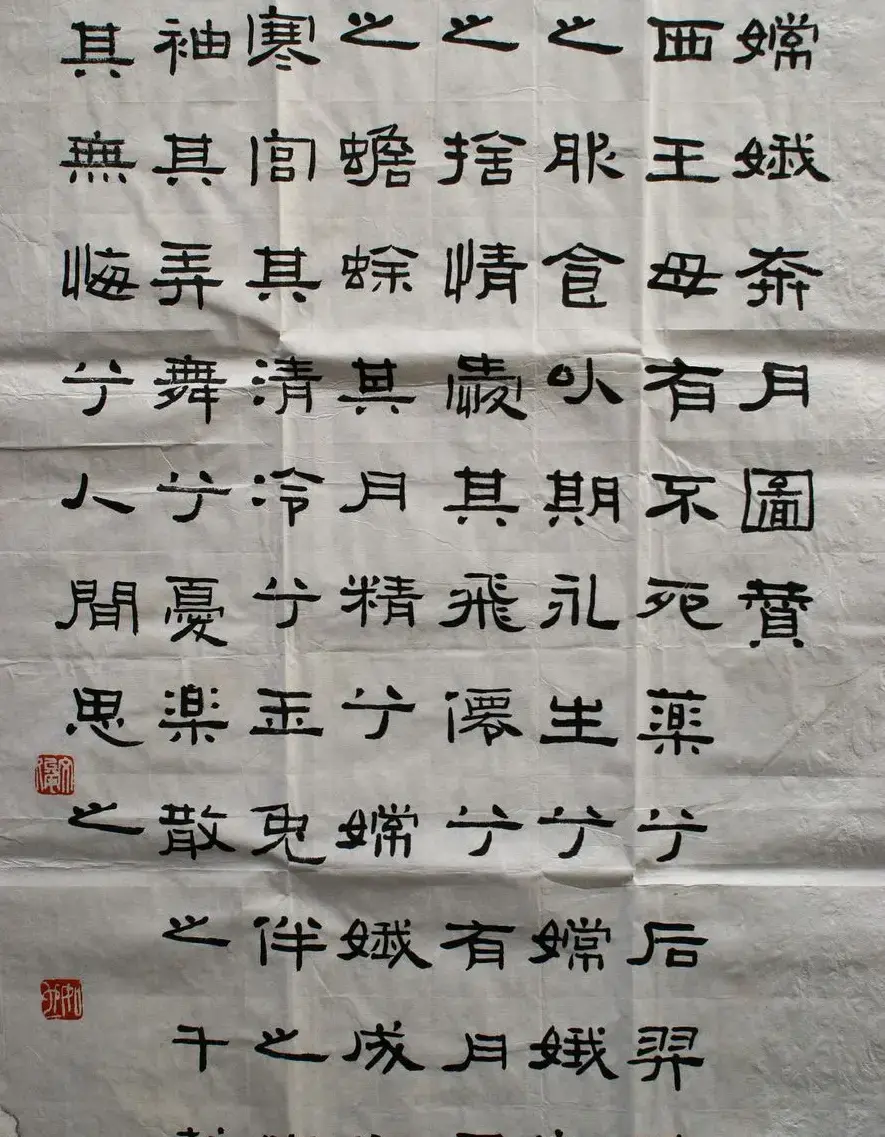 嫦娥奔月圖贊
西王母有不死藥兮后羿
之服食以期永生兮嫦娥
之捨情歲其飛僊兮有月
之蟾蜍其月精兮嫦娥成
寒宮其清冷兮玉兔伴之
袖其弄舞兮憂樂散之千
其無悔兮人間思之